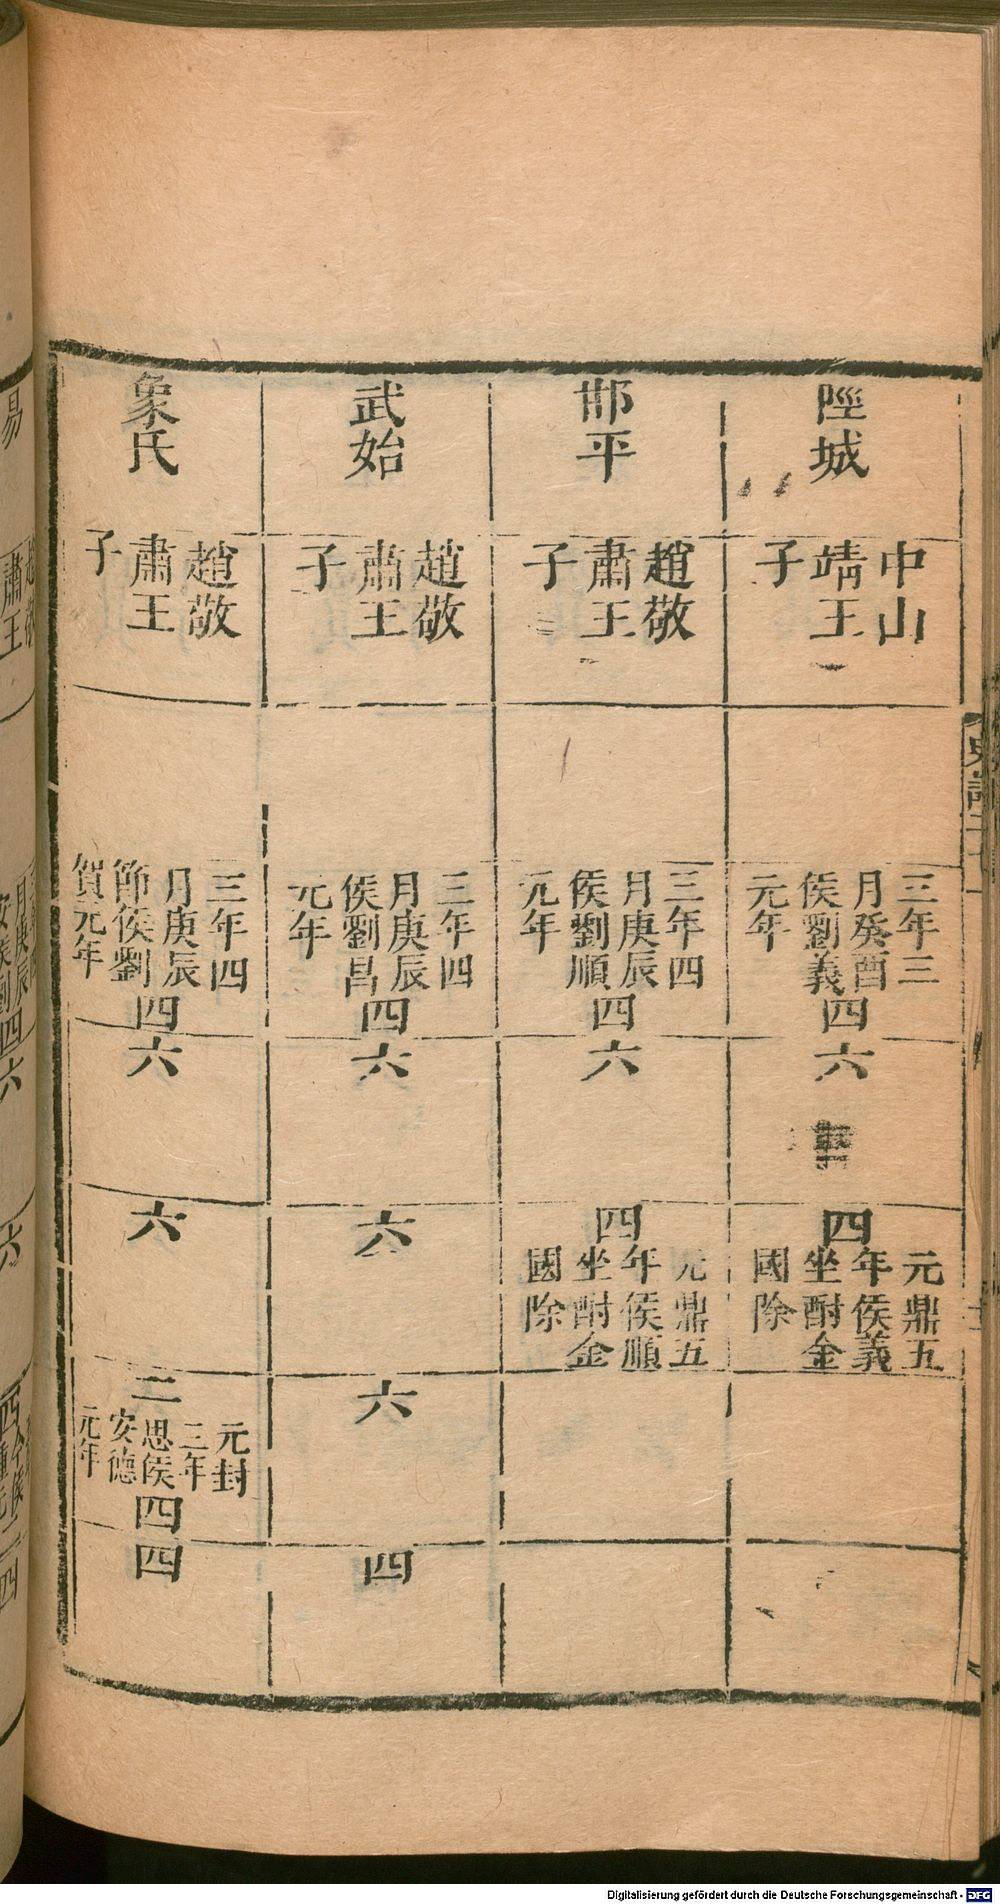 陘城
中山
靖王
子
三年三
月癸酉
侯劉義
元年
四
六
四
元鼎五
年侯義
坐酎金
國除
邯平
趙敬
肅王
子
三年四
月庚辰
侯劉順
元年
四
六
四
元鼎五
年侯順
坐酎金
國除
武始
趙敬
肅王
子
三年四
月庚辰
侯劉昌
元年
四
六
六
六
四
象氏
趙敬
肅王
子
三年四
月庚辰
節侯劉
賀元年
四
六
六
二
元封
三年
思侯
安德
元年
四
四
Digitalisierung gefördert durch die Deutsche Forschungsgemeinschaft - DFG